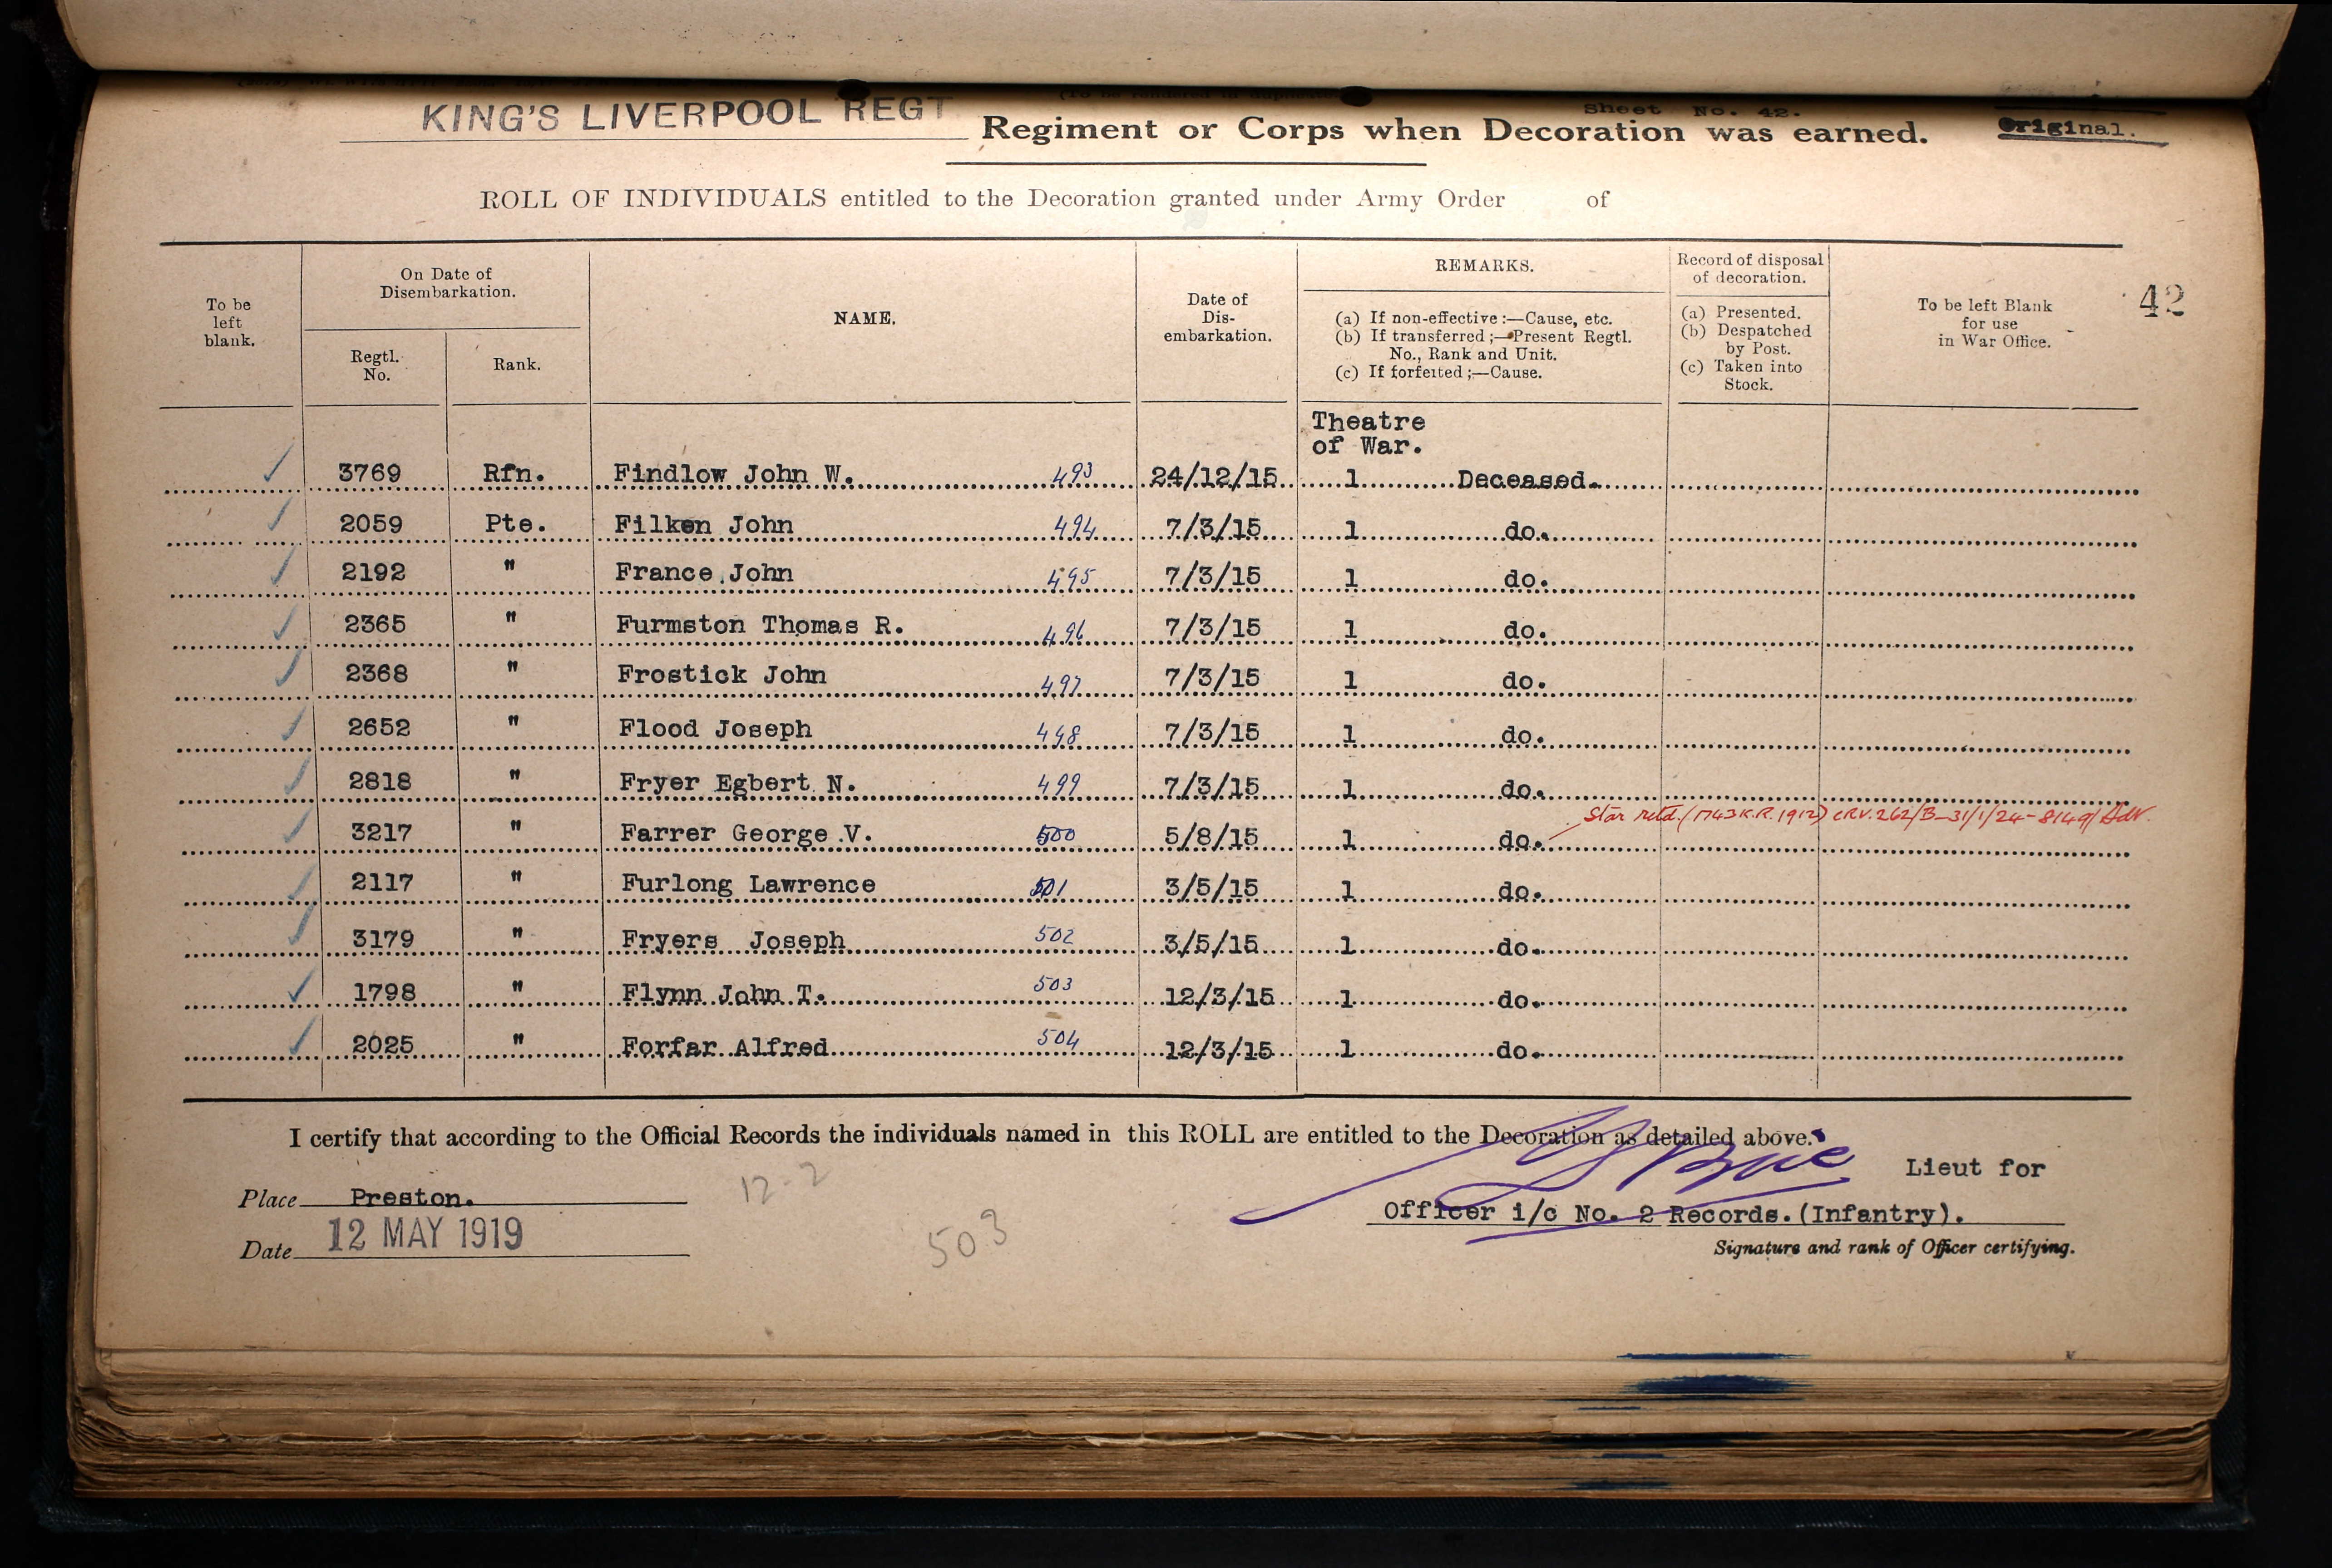 Sheet No. 42.
KING'S LIVERPOOL REGT Regiment or Corps when Decoration was earned. Original.
ROLL OF INDIVIDUALS entitled to the Decoration granted under Army Order of
42
To be left blank.
On Date of Disembarkation.
Regtl. No.
Rank.
NAME.
Date of Dis-embarkation.
REMARKS.
(a) If non-effective:—Cause, etc.
(b) If transferred;—Present Regtl. No., Rank and Unit.
(c) If forfeited;—Cause.
Record of disposal of decoration.
(a) Presented.
(b) Despatched by Post.
(c) Taken into Stock.
To be left Blank for use in War Office.
Theatre of War.
3769 Rfn. Findlow John W. 493 24/12/15 1 Deceased.
2059 Pte. Filken John 494 7/3/15 1 do.
2192 " France John 495 7/3/15 1 do.
2365 " Furmston Thomas R. 496 7/3/15 1 do.
2368 " Frostick John 497 7/3/15 1 do.
2652 " Flood Joseph 498 7/3/15 1 do.
2818 " Fryer Egbert N. 499 7/3/15 1 do.
3217 " Farrer George V. 500 5/8/15 1 do. Star retd. (1743 K.R. 1912) 262/B-31/1/24-8149/Adt.
2117 " Furlong Lawrence 501 3/5/15 1 do.
3179 " Fryers Joseph 502 3/5/15 1 do.
1798 " Flynn John T. 503 12/3/15 1 do.
2025 " Forfar Alfred 504 12/3/15 1 do.
I certify that according to the Official Records the individuals named in this ROLL are entitled to the Decoration as detailed above.
Lieut for
Place Preston. 12-2
Officer i/c No. 2 Records.(Infantry).
Date 12 MAY 1919 503
Signature and rank of Officer certifying.